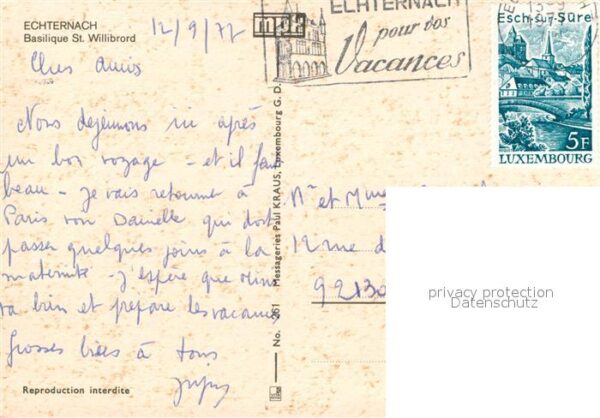 ECHTERNACH
Basilique St. Willibrord
12/9/77
Chers Amis
Nous déjeunons ici après
un bon voyage - et il fait
beau - Je vais retourner à
Paris voir Danielle qui doit
passer quelques jours à la
maternité - J'espère que
va bien et prépare les vacances
Grosses bises à tous
ECHTERNACH
pour vos
Vacances
Esch-sur-Sûre
5F
LUXEMBOURG
Mr et Mme
12 rue d
92130
No. 251 Messageries Paul KRAUS, Luxembourg G. D.
Reproduction interdite
privacy protection
Datenschutz